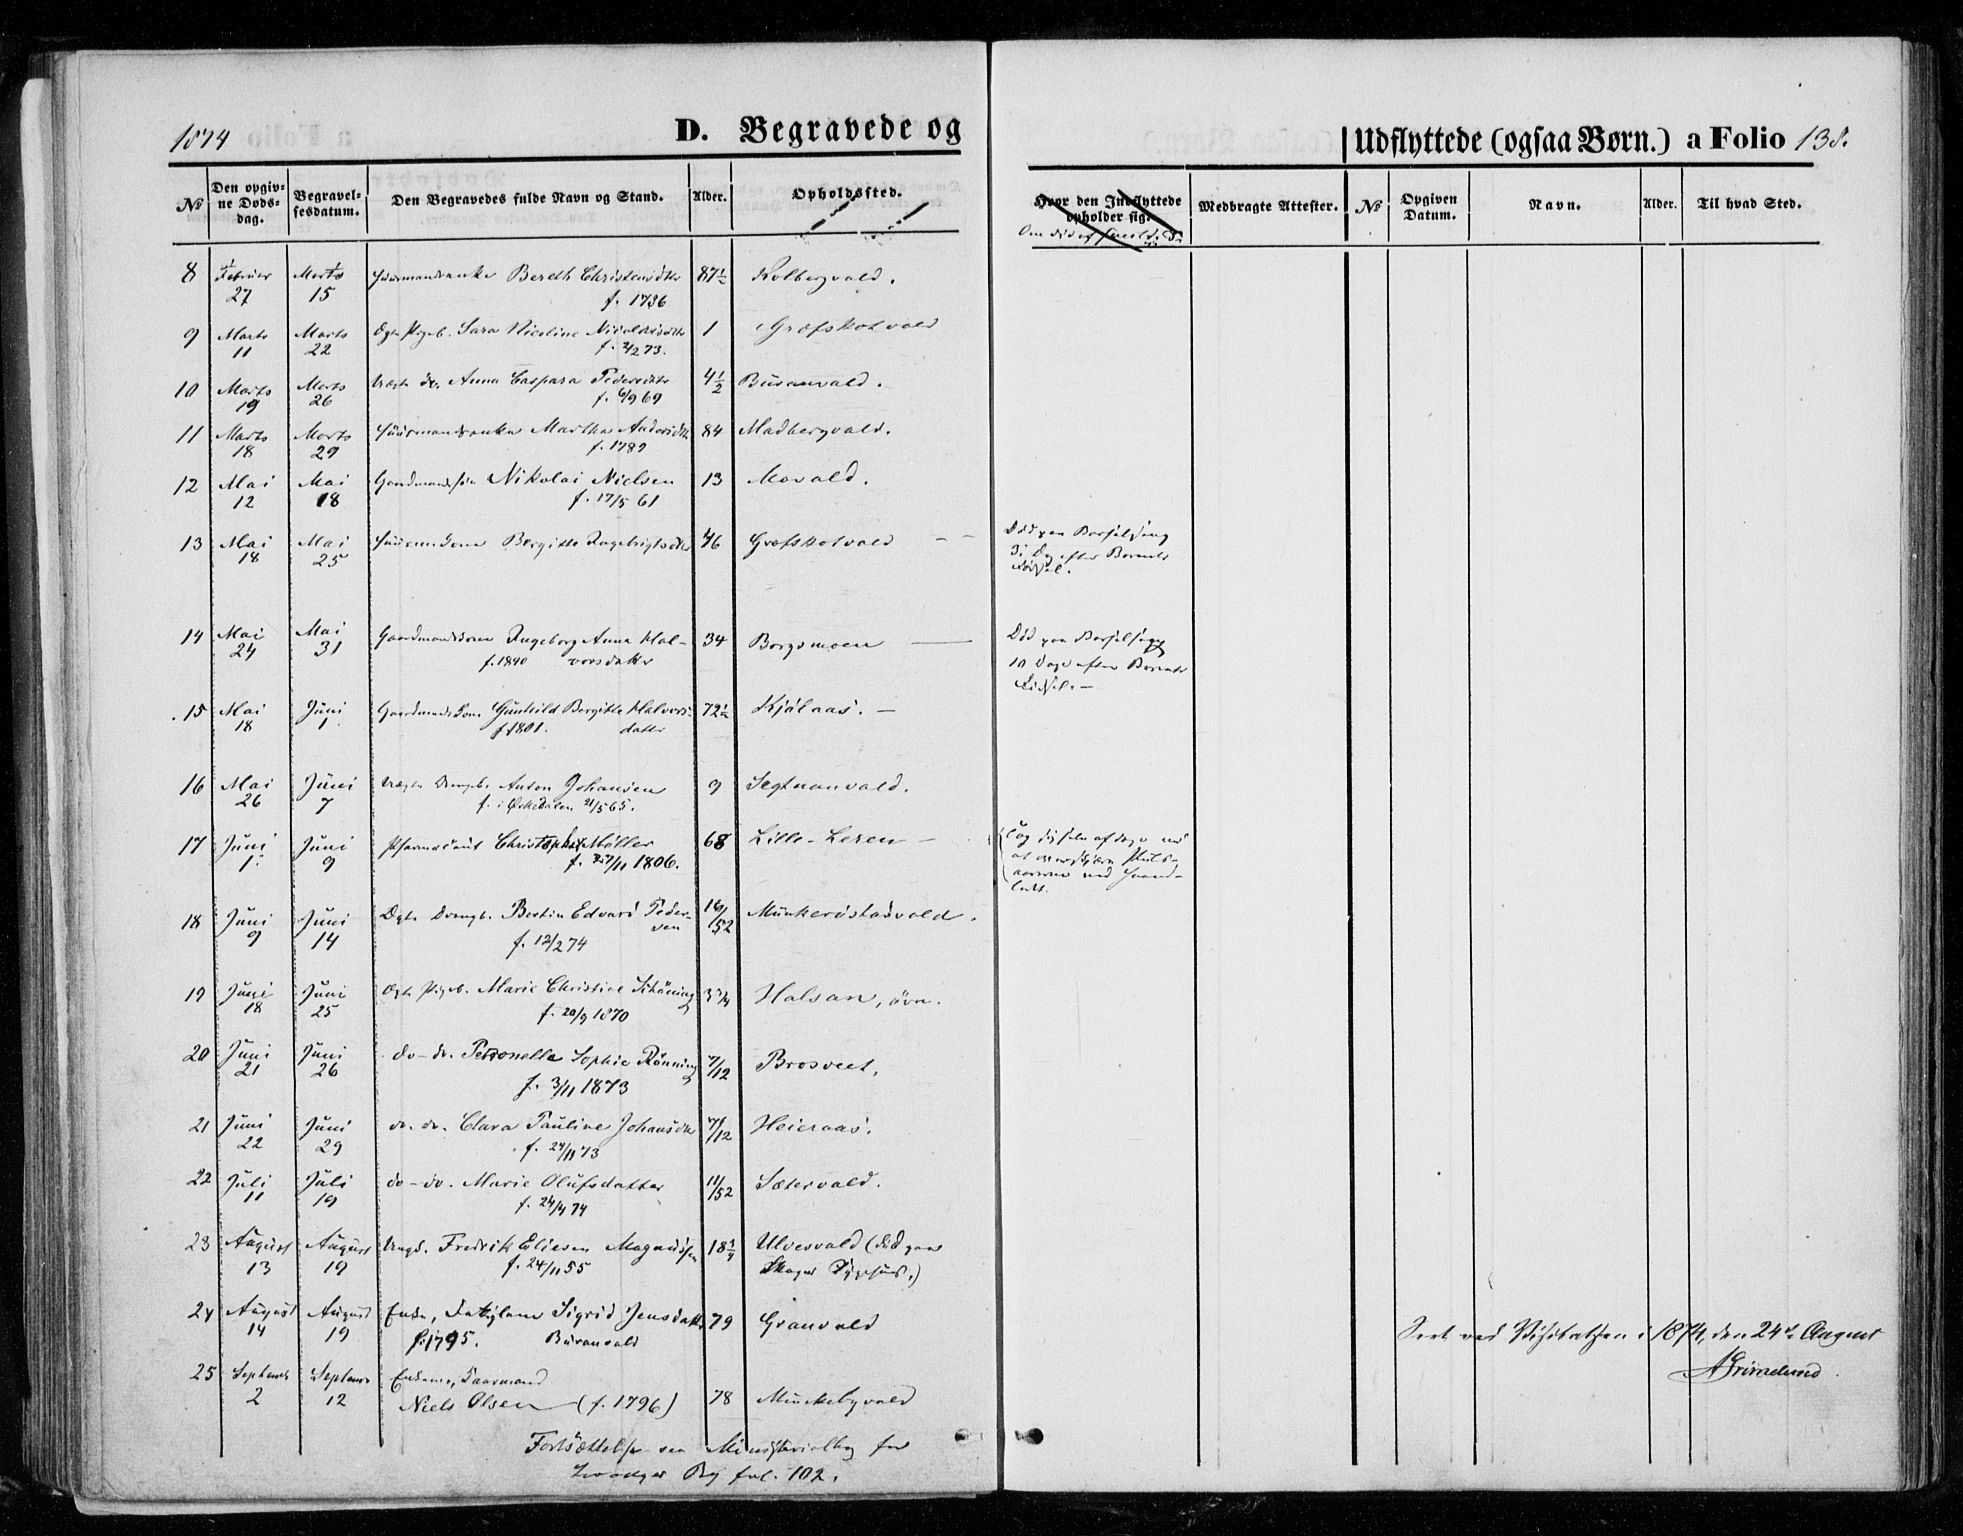 1874
D. Begravede og
Udflyttede (ogsaa Børn.) a Folio 138.
No Den opgivne Dødsdag. Begravelsesdatum. Den Begravedes fulde Navn og Stand. Alder. Opholdssted.
Hvor den Indflyttede opholder sig. Medbragte Attester. No Opgiven Datum. Navn. Alder. Til hvad Sted.
8 Februar 27 Marts 15 Huusmandsenke Bereth Christensdtr 87½ Kolbergvald.
f. 1736
9 Marts 11 Marts 22 Ægte Pigeb. Sara Nicoline Nicolaisdtr 1 Græfskotvald
f. 2/2 73.
10 Marts 19 Marts 26 Uægte do. Anna Caspara Pedersdtr 4½ Buranvald.
f. 6/9 69
11 Marts 18 Marts 29 Huusmandsenke Martha Andersdtr 84 Madbergvald.
f. 1789
12 Mai 12 Mai 18 Gaardmandssøn Nikolai Nielsen 13 Movald.
f. 17/5 61
13 Mai 18 Mai 25 Huusm.kone Bergitte Ingebrigtsdtr 46 Græfskotvald — Død paa Barselseng
3 Dag efter Barnets
Fødsel.
14 Mai 24 Mai 31 Gaardmandskone Ingeborg Anna Hal- 34 Borgsmoen — Død paa Barselseng
f. 1840 vorsdatter 10 Dage efter Barnets
Fødsel. —
15 Mai 18 Juni 1 Gaardmandskone Gunhild Bergitte Halvors- 72½ Kjølaas. —
f. 1801. datter
16 Mai 26 Juni 7 Uægte Drengeb. Anton Johansen 9 Segtnanvald.
f. i 21/5 65.
17 Juni 1. Juni 9 Pharmaceut Christopher Møller 68 Lille-Leren —
f. 27/11 1806.
18 Juni 9 Juni 14 Ægte Drengb. Bertin Edvard Peder- 16/52 Munkerøstadvald.
sen
f. 12/2 74
19 Juni 18 Juni 25 Ægte Pigeb. Marie Christine Schøning 3¾ Halsan, øvr.
f. 20/9 1870
20 Juni 21 Juni 26 do-do. Petronella Sophie Rønning 7/12 Brosveet.
f. 3/11 1873
21 Juni 22 Juni 29 do. do. Clara Pauline Johansdtr 7/12 Heieraas.
f. 27/11 73
22 Juli 11 Juli 19 do-do. Marie Olufsdatter 11/52 Sætervald.
f. 24/4 74
23 August 13 August 19 Ungk. Fredrik Eliesen Magnussen 18¾ Ulvesvald (død paa
f. 24/11 55 Sygehus.)
24 August 14 August 19 Enke, Sigrid Jensdatter 79 Granvald
f. 1795. Buranvald
25 September 2 September 12 Enkem.,
Niels Olsen (f. 1796) 78 Munkebyvald
Fortsættelse see Ministerialbog for
Levanger By fol. 102.
Seet ved Visitatsen i 1874, den 24de August
AGrimelund